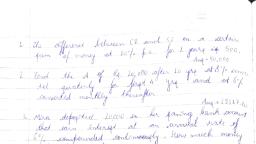 1. The different between CI and SI on a certain
sum of money at 10% p.a. for 2 years is 500.
Ans - 50,000
2. Find the A of Rs. 10,000 after 10 yrs at 8% comp-
quarterly for first 4 yrs and at 6%
monthly thereafter
Ans
deposited 10,000 in her saving bank account
that earn interest at an annual rate of
6% compounded continuously. How much money